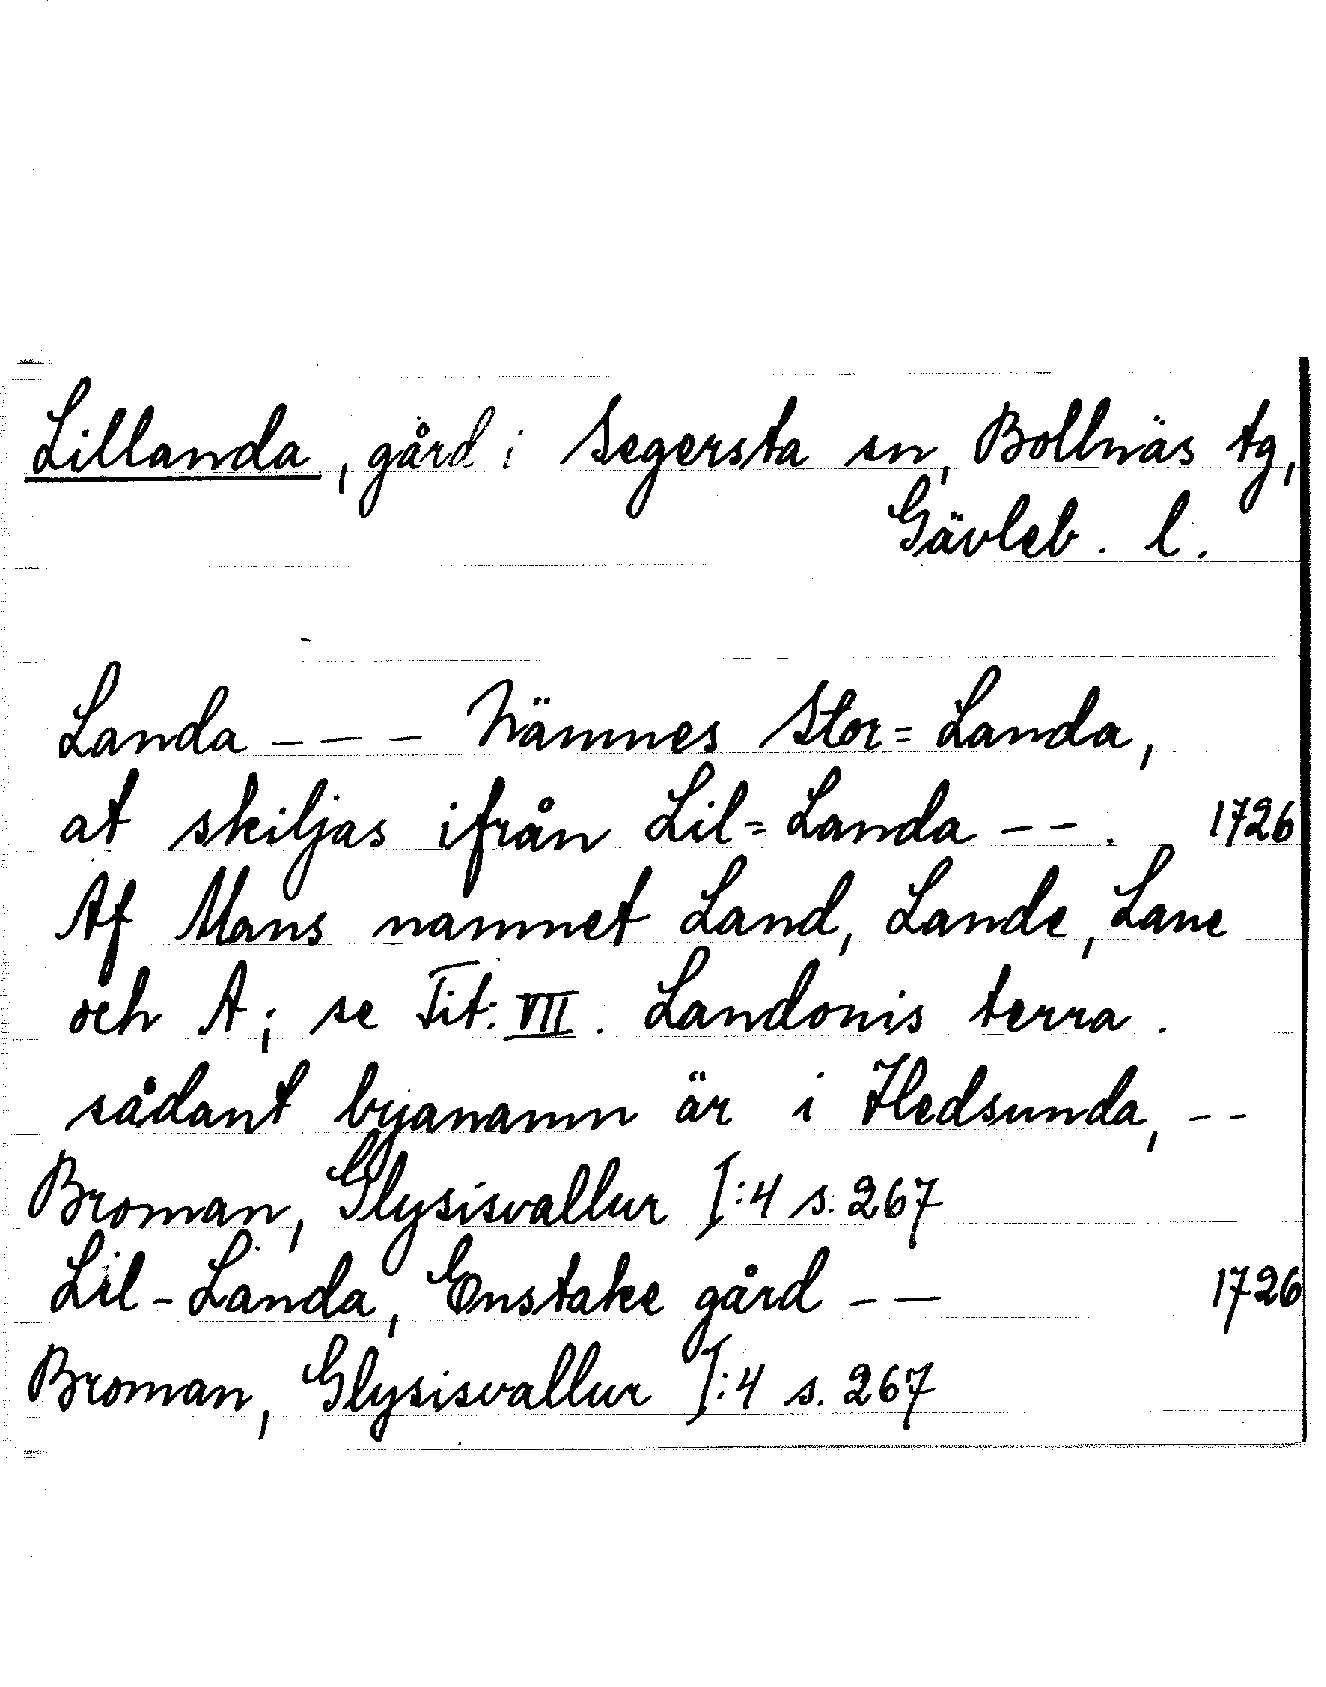 Lillanda, gård i Segersta sn, Bollnäs tg,
Gävleb. l.
Landa - - - Nämnes Stor=Landa,
at skiljas ifrån Lil=Landa - - . 1726
Af Mans namnet Land, Lande, Lane
och A; se Tit: VII. Landonis terra.
sådant byanamn är i Hedsunda, - -
Broman, Glysisvallur I:4 s. 267
Lil-Landa, Enstake gård - - 1726
Broman, Glysisvallur I:4 s. 267